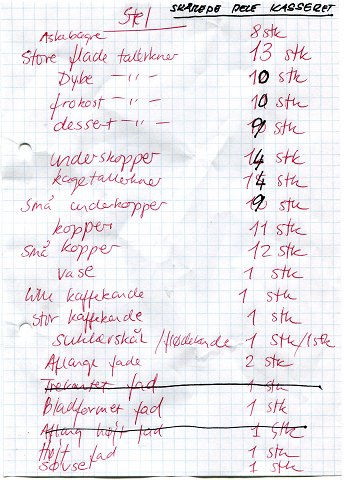 Stel SKÅREDE DELE KASSERET
Askebægre 8 stk
Store flade tallerkner 13 stk
Dybe -"- 10 stk
frokost -"- 10 stk
dessert -"- stk
underskopper 14 stk
kagetallerkner 14 stk
små underkopper stk
kopper 11 stk
små kopper 12 stk
vase 1 stk
lille kaffekande 1 stk
stor kaffekande 1 stk
sukkerskål / flødekande 1 stk/1stk
Aflange fade 2 stk
Trekantet fad 1 stk
Bladformet fad 1 stk
Aflang højt fad 1 stk
Højt fad 1 stk
sovse 1 stk